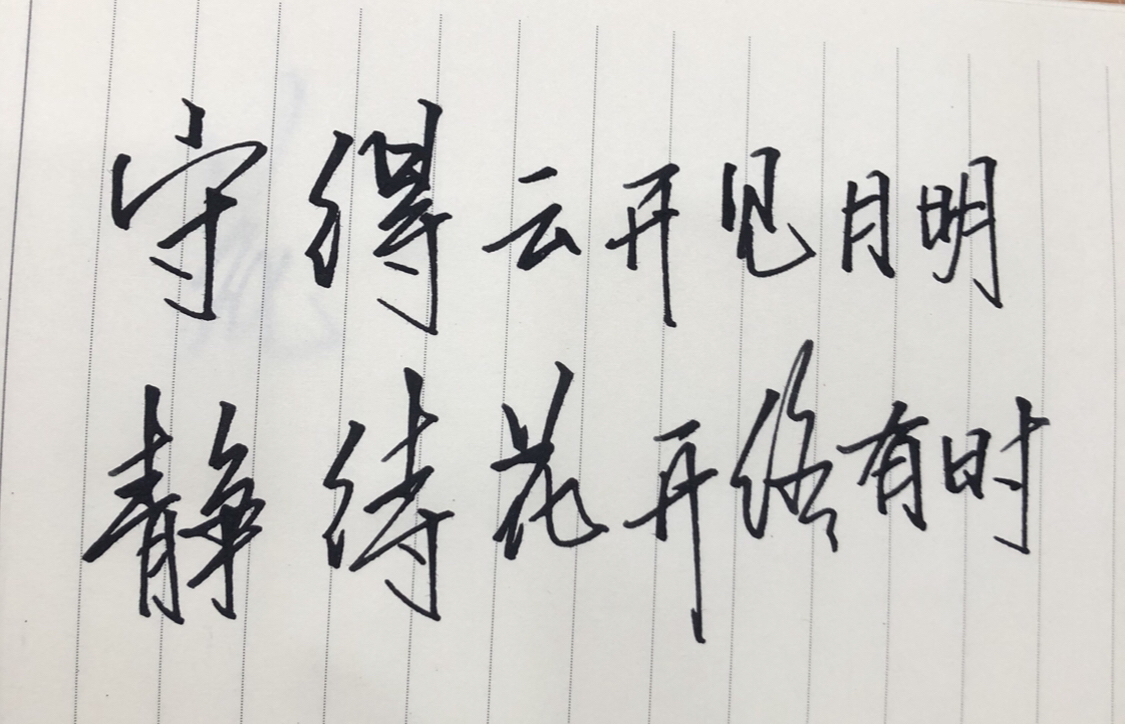 守得云开见月明
静待花开终有时